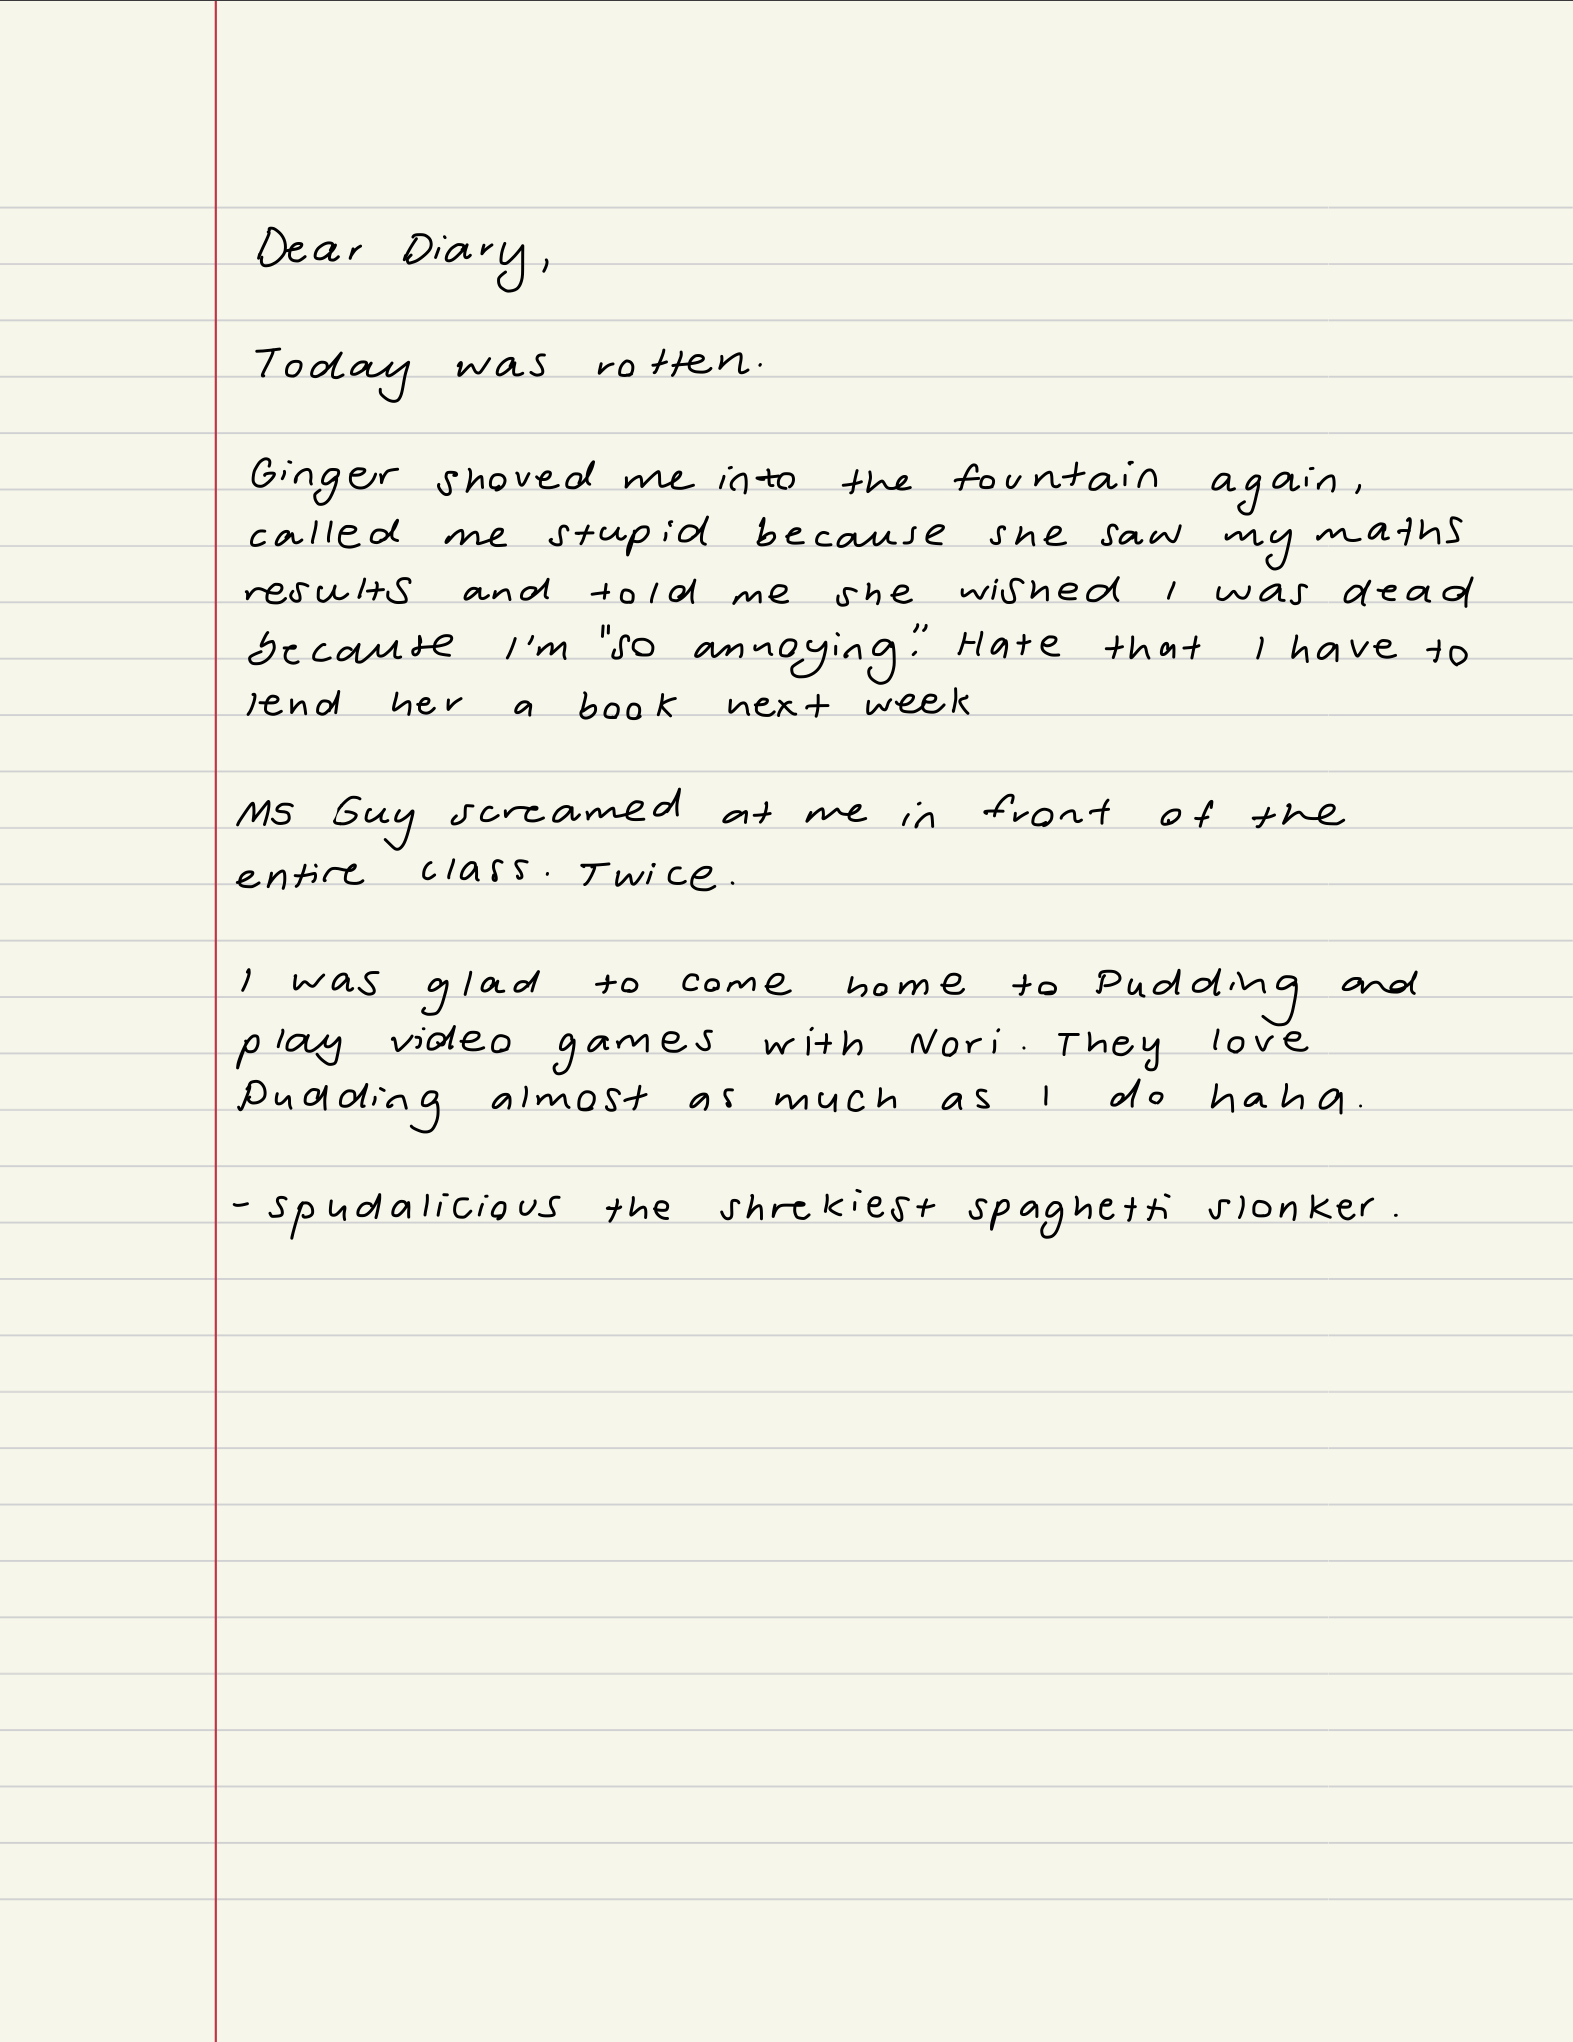 Dear Diary,
Today was rotten.
Ginger shoved me into the fountain again,
called me stupid because she saw my maths
results and told me she wished I was dead
because I'm "so annoying." Hate that I have to
lend her a book next week
Ms Guy screamed at me in front of the
entire class. Twice.
I was glad to come home to Pudding and
play video games with Nori. They love
Pudding almost as much as I do haha.
- spudalicious the shrekiest spaghetti slonker.